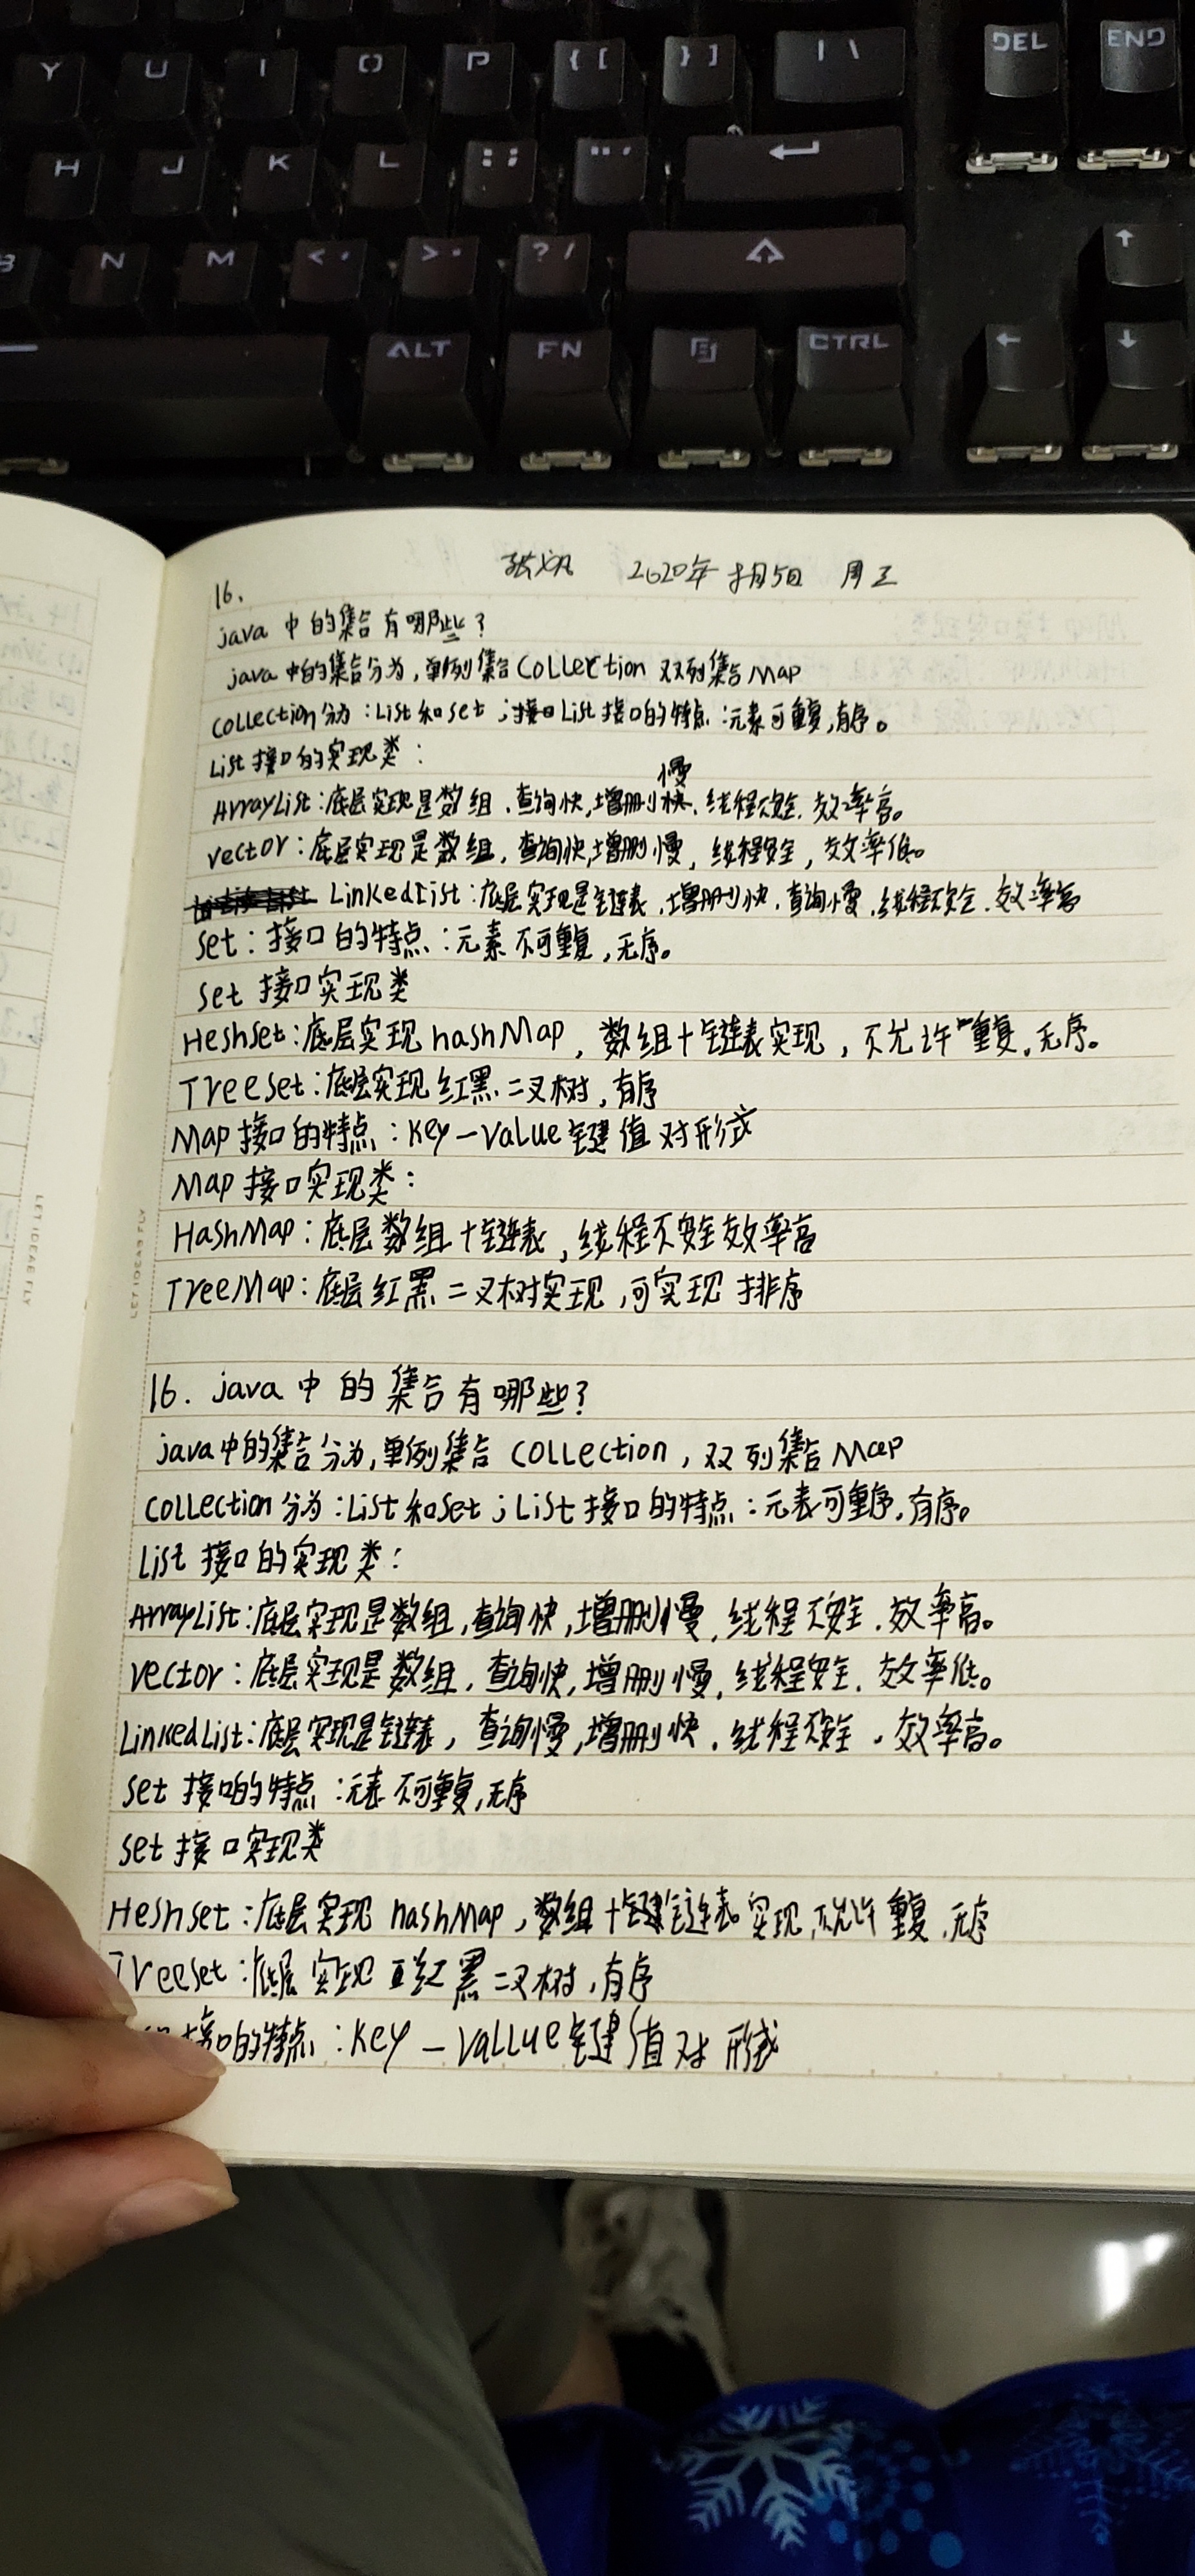 Y U I O P { [ } ] | \ DEL END
H J K L : ; " '
B N M < , > . ? /
ALT FN CTRL
2020年8月5日 周三
16.
java 中的集合有哪些?
java 中的集合分为,单列集合Collection 双列集合Map
collection分为:List和set;接口List接口的特点:元素可重复,有序。
List接口的实现类:
慢
ArrayList:底层实现是数组.查询快,增删快.线程不安全.效率高。
vector:底层实现是数组,查询快,增删慢,线程安全,效率低。
LinkedList:底层实现是链表.增删快.查询慢.线程不安全.效率高
set:接口的特点:元素不可重复,无序。
set 接口实现类
Heshset:底层实现hashMap,数组+链表实现,不允许重复.无序。
Treeset:底层实现红黑二叉树,有序
Map接口的特点:Key-value键值对形式
Map接口实现类:
HashMap:底层数组+链表,线程不安全效率高
TreeMap:底层红黑二叉树实现,可实现排序
16. java 中的集合有哪些?
java中的集合分为,单列集合 collection,双列集合Map
collection分为:List和set;List接口的特点:元素可重序.有序。
List接口的实现类:
ArrayList:底层实现是数组,查询快,增删慢,线程不安全.效率高。
vector:底层实现是数组,查询快,增删慢,线程安全.效率低。
LinkedList:底层实现是链表,查询慢,增删快.线程不安全.效率高。
set接口的特点:元素不可重复,无序
set接口实现类
Heshset:底层实现 hashMap,数组+键链表实现,不允许重复.无序
Treeset:底层实现红黑二叉树,有序
接口的特点:Key-vallue键值对形式
LET IDEAS FLY
LET IDEAS FLY